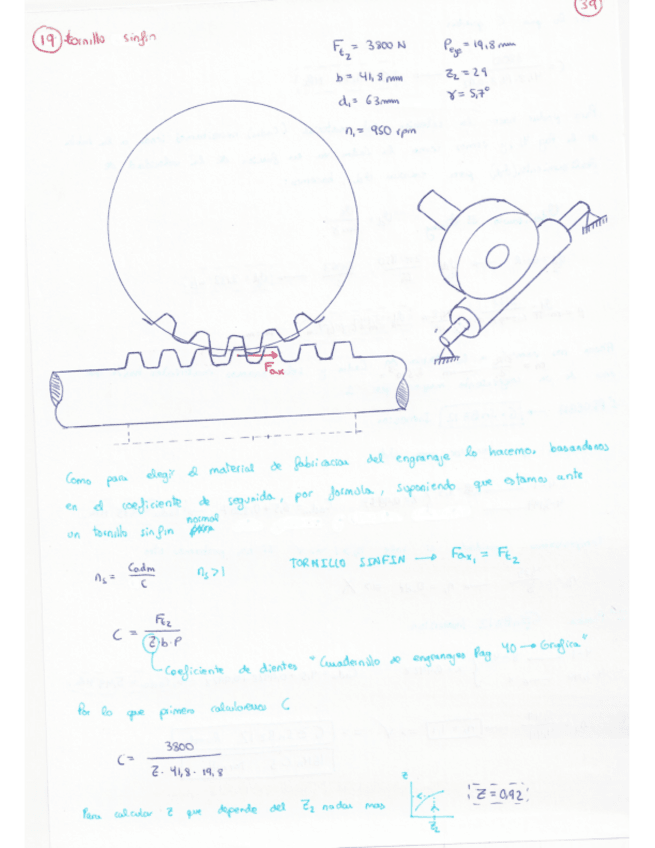 39
19 tornillo sinfin
Ft2 = 3800 N
Peje = 19,8 mm
b = 41,8 mm
Z2 = 29
d1 = 63mm
γ = 5,7°
n1 = 950 rpm
Fax
Como para elegir el material de fabricacion del engranaje lo hacemos, basandonos
en el coeficiente de segurida, por formula, suponiendo que estamos ante
un tornillo sinfin normal
ns = Cadm / C
ns > 1
TORNILLO SINFIN → Fax1 = Ft2
C = Ft2 / Z·b·P
Coeficiente de dientes "Cuadernillo de engranajes Pag 40 → Grafica"
Por lo que primero calcularemos C
C = 3800 / Z · 41,8 · 19,8
Para calcular Z que depende del Z2 nadas mas
Z
Z2
Z = 0,92